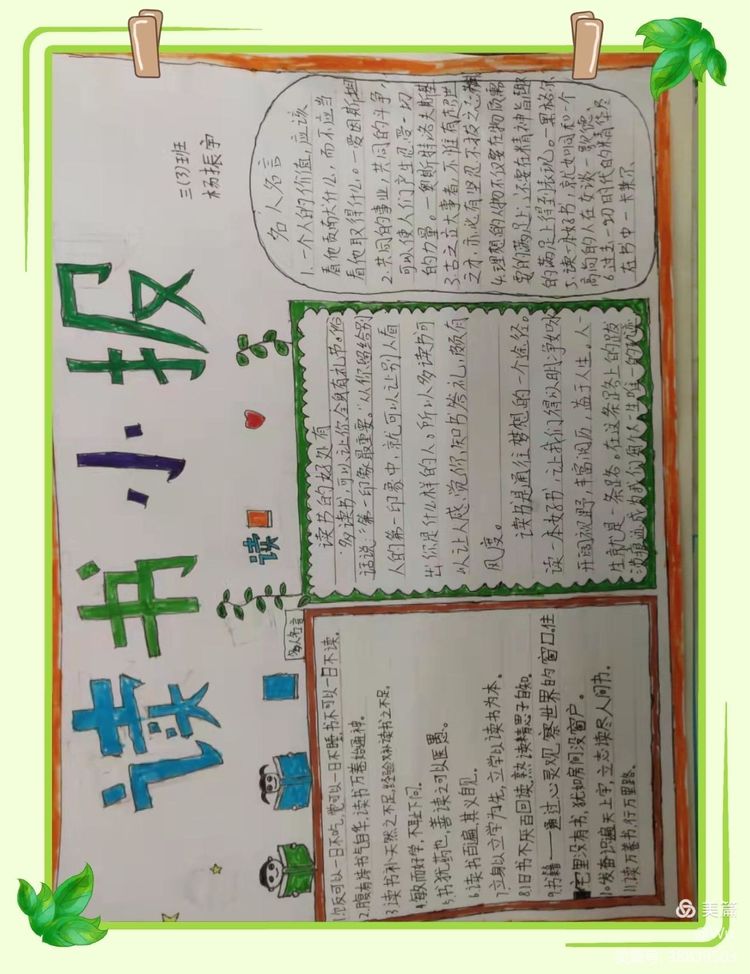 读书小报
三(3)班
杨振宇
读
名人名言
1.饭可以一日不吃,觉可以一日不睡,书不可以一日不读。
2.腹有诗书气自华,读书万卷始通神。
3.读书补天然之不足,经验又补读书之不足。
4.敏而好学,不耻下问。
5.书犹药也,善读之可以医愚。
6.读书百遍,其义自见。
7.立身以立学为先,立学以读书为本。
8.旧书不厌百回读,熟读精思子自知。
9.书籍——通过心灵观察世界的窗口。住
宅里没有书,犹如房间没窗户。
10.发奋识遍天下字,立志读尽人间书。
11.读万卷书,行万里路。
读书的好处有
多读书,可以让你全身有礼节。俗
话说:“第一印象最重要。”从你留给别
人的第一印象中,就可以让别人看
出你是什么样的人。所以多读书可
以让人感觉你知书答礼,颇有
风度。
读书是通往梦想的一个途径。
读一本好书,让我们得以明净如水
开阔视野,丰富阅历,益于人生。人一
生就是一条路。在这条路上的跋
涉痕迹成为我们每个人一生唯一的轨迹
名人名言
1.一个人的价值,应该
看他贡献什么,而不应当
看他取得什么。—爱因斯坦
2.共同的事业,共同的斗争,
可以使人们产生忍受一切
的力量。—奥斯特洛夫斯基
3.古之立大事者,不惟有超世
之才,亦必有坚忍不拔之志
4.理想的人物不仅要在物质需
要的满足上,还要在精神旨趣
的满足上得到表现。—黑格尔
5.读一本好书,就如同和一个
高尚的人在交谈—歌德
6.过去一切时代的精华尽
在书中—卡莱尔
美篇